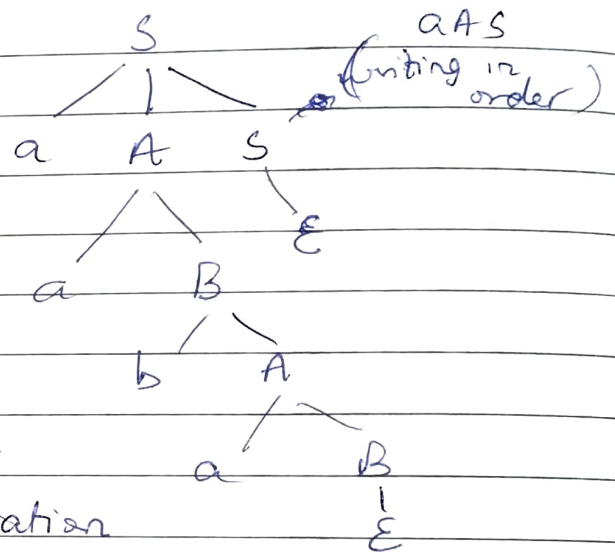 S aAS
(writing in
order)
a A S
ε
a B
b A
a B
ation ε